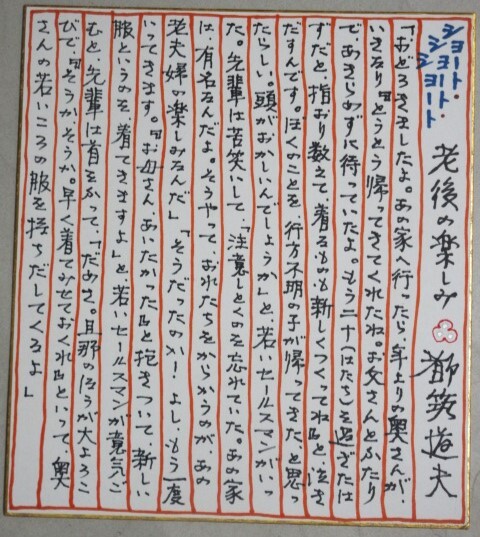 ショート・
ショート・
ショート
老後の楽しみ 都筑道夫
「おどろきましたよ。あの家へ行ったら、年よりの奥さんが、
いきなり『とうとう帰ってきてくれたね。お父さんとふたり
であきらめずに待っていたよ。もう二十(はたち)を過ぎたは
ずだと、指おり数えて着るものも新しくつくってね』と泣き
だすんです。ぼくのことを、行方不明の子が帰ってきた、と思っ
たらしい。頭がおかしいんでしょうか」と、若いセールスマンがいっ
た。先輩は苦笑いして、「注意しとくのを忘れていた。あの家
は、有名なんだよ。そうやって、おれたちをからかうのが、あの
老夫婦の楽しみなんだ」「そうだったのか!よし、もう一度
いってきます。『お母さん、あいたかった』と抱きついて、新しい
服というのを、着てきますよ」と、若いセールスマンが意気ご
むと、先輩は首をふって、「だめさ。旦那のほうが大よろこ
びで、『そうかそうか。早く着てみせておくれ』といって、奥
さんの若いころの服を持ちだしてくるよ」